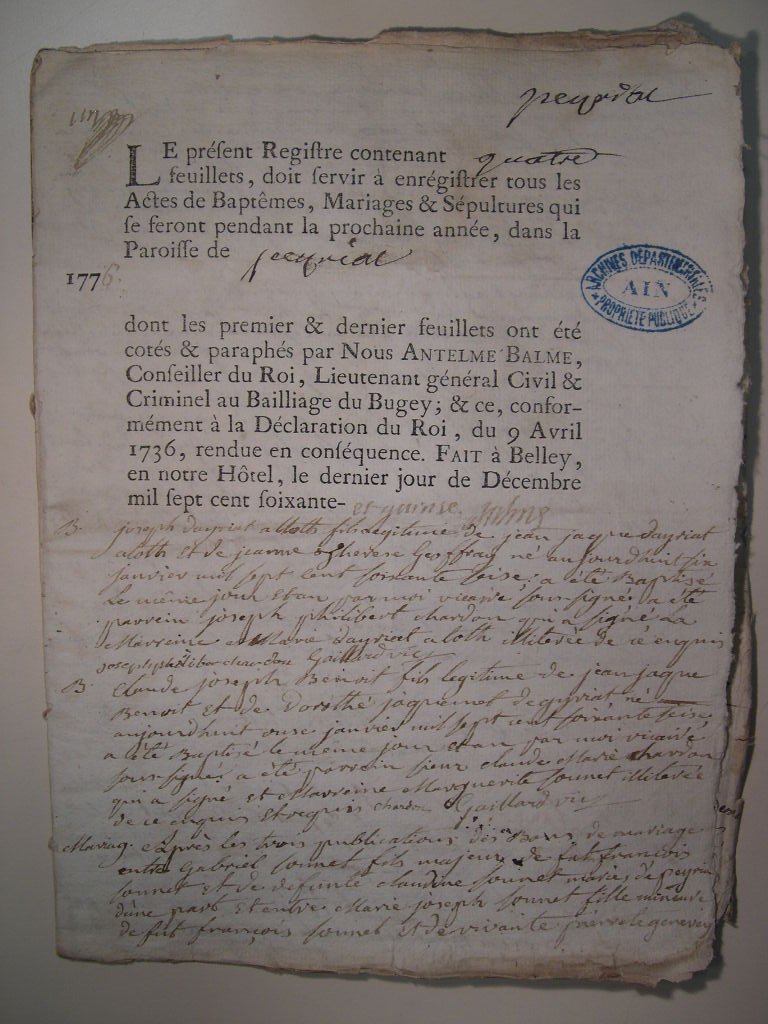 peyriat
LE préſent Regiſtre contenant quatre
feuillets, doit ſervir à enrégiſtrer tous les
Actes de Baptêmes, Mariages & Sépultures qui
ſe feront pendant la prochaine année, dans la
Paroiſſe de peyriat
1776.
ARCHINES DÉPARTEMENTALES
AIN
PROPRIÉTÉ PUBLIQUE
dont les premier & dernier feuillets ont été
cotés & paraphés par Nous ANTELME BALME,
Conſeiller du Roi, Lieutenant général Civil &
Criminel au Bailliage du Bugey; & ce, confor-
mément à la Déclaration du Roi, du 9 Avril
1736, rendue en conſéquence. FAIT à Belley,
en notre Hôtel, le dernier jour de Décembre
mil ſept cent ſoixante- et quinse
B. joseph dayriat alloth fils legitime de jean jaque dayriat
aloth et de jeanne therese Geoffray né aujourdhuit six
janvier mil sept cent soisante seise a été Baptisé
le même jour et an par moi vicaire sous-signé a été
parrein joseph philibert chardon qui a signé La
Marreine Marie dayriat aloth illiterée de ce enquis
joseph philibert chardon Gaillard vic
B. Claude joseph Benoit fils legitime de jean jaque
Benoit et de Dorothé jaquemot degyriat né
aujourdhuit onse janvier mil sept cent soisante seise,
a été Baptisé le meme jour et an par moi vicaire
sous-signé a été parrein sieur claude Marie chardon
qui a signé et Marreine Marguerite sonnet illiterée
de ce enquis et requis chardon Gaillard vic
Mariag. Après les trois publications des Bans de mariage
entre Gabriel sonnet fils majeur de fut françois
sonnet et de defunte claudine sonnet mariés de peyria
d'une part et entre Marie joseph sonnet fille mineure
de fut françois sonnet et de vivante